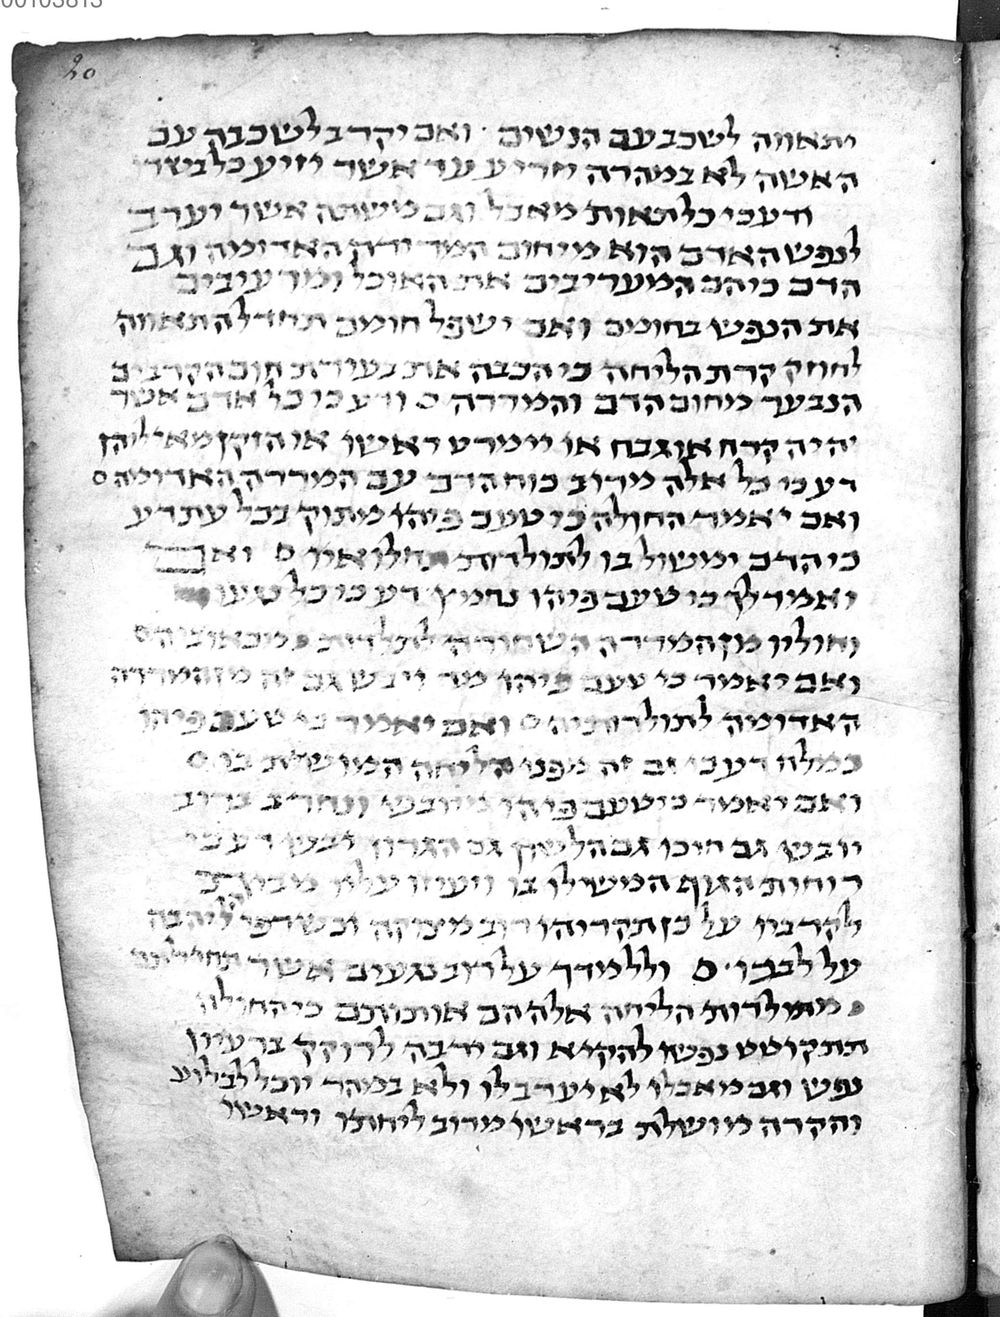 00103813
20
יתאווה לשכב עם הנשים · ואם יקרב לשכבה עם
האשה לא במהרה יזריע עד אשר יזיע כל בשרו
ודע כי כל תאות מאכל וגם משתה אשר יערב
לנפש האדם הוא מיחום המרירה האדומה וגם
הדם כי הם המעריבים את האוכל ומרעיבים
את הנפש בחומם ואם ישפל חומם תחדל התאווה
לחוזק קרת הליחה כי הכבה את בעירת חום הקרבים
הנבער מחום הדם והמררה ס ודע כי כל אדם אשר
יהיה קרח או גבח או יימרט ראשו או הזקן מאיליהן
דע כי כל אלה מרוב כוח הדם עם המררה האדומה ס
ואם יאמר החולה כי טעם פיהו מתוק בכל עת דע
כי הדם ימשול בו לתולדות חלואיו ס ואם
יאמר לך כי טעם פיהו נחמץ דע כי כל
וחוליו מן המררה השחורה
ואם יאמר כי טעם פיהו מר ויבש גם זה מן המררה
האדומה לתולדותיה ס ואם יאמר כי טעם פיהו
כמלח דע כי גם זה מפני הליחה המושלת בו ס
ואם יאמר כי טעם פיהו ונחרב ברוב
יובש גם חיכו גם הלשון גם הגרון יבש דע כי
רוחות הגוף המשילו בו
לקרביו על כן תקריהו רוב מצוקה ובשרפו ליהבה
על לבבו · ס וללמדך על רוב נגעים אשר
מתולדות הליחה אלה הם אותותם כי החולה
תתקוטט נפשו להקיא וגם ירבה לרוקק ברעיון
נפש וגם מאכלו לא יערב לו ולא במהר יוכל לבלוע
והקרה מושלת בראשו מרוב ליחתו וראשו